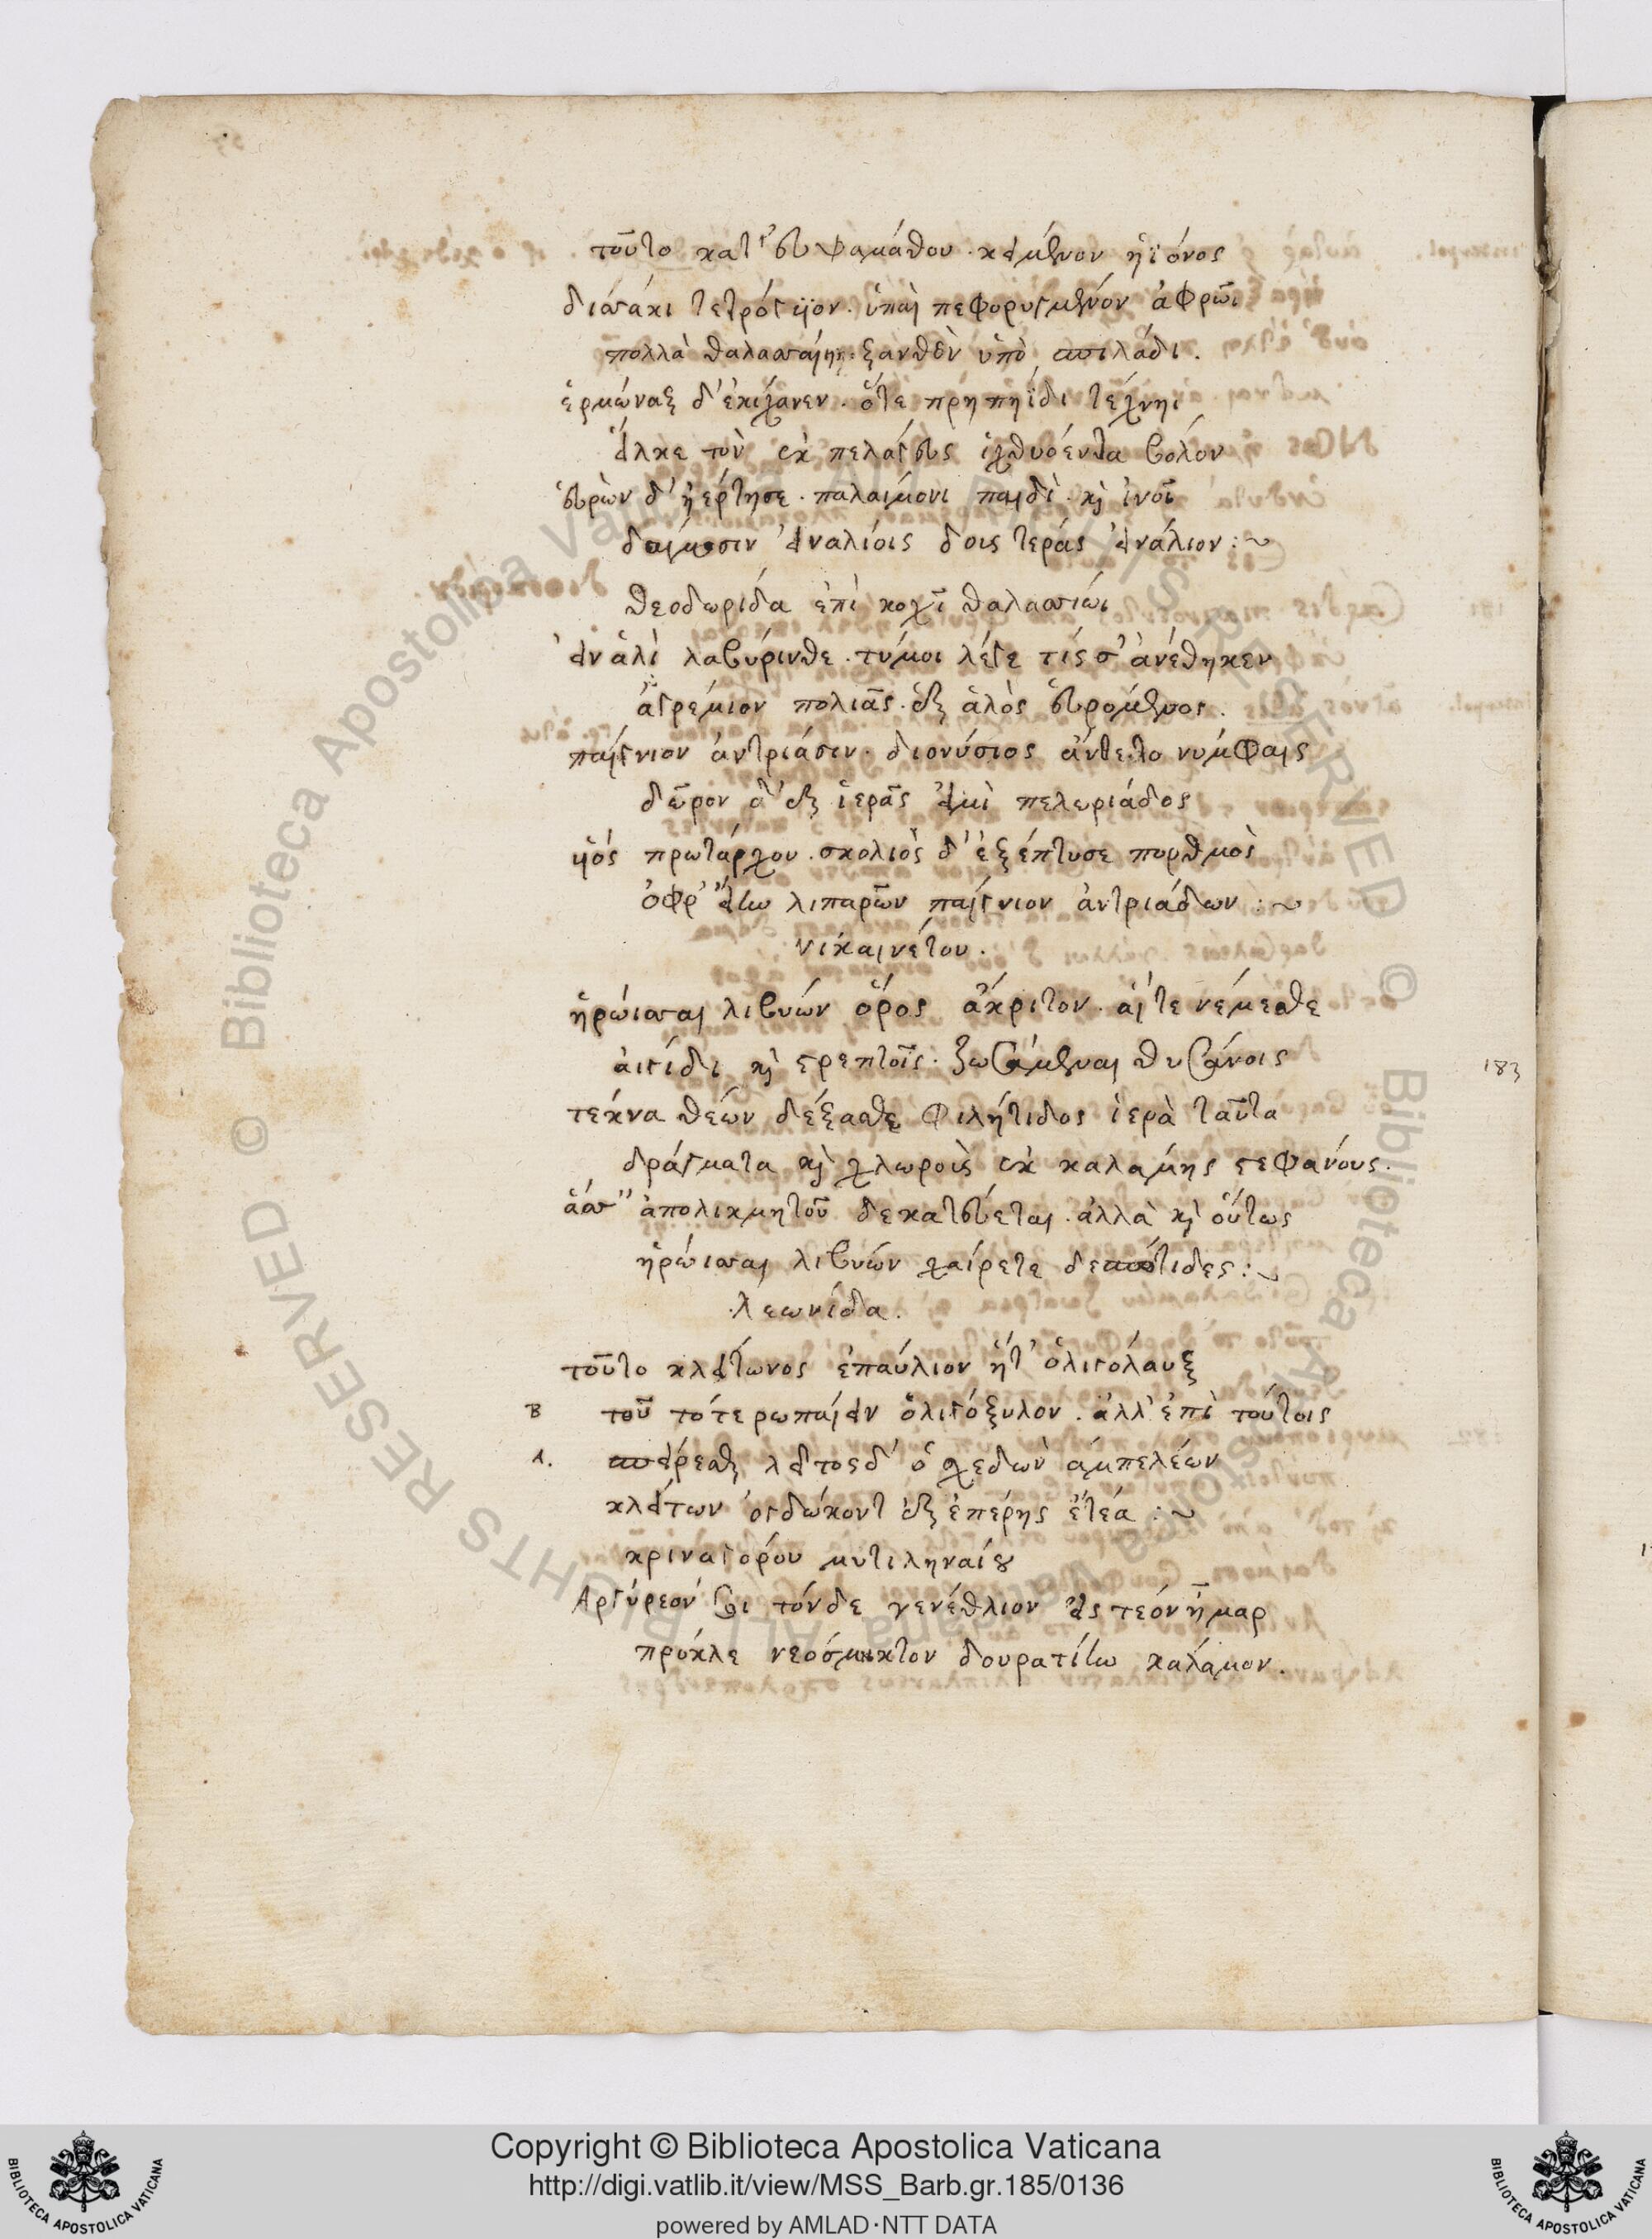 τοῦτο κατ' εὐψαμάθου. κείμενον ἠϊόνος
δισσάκι τετρόγυιον. ὑπαὶ πεφορυγμένον ἀφρῶι
πολλὰ θαλασσαίηι. ξανθὲν ὑπὸ σπιλάδι.
ἑρμώναξ δ' ἐκίχανεν. ὅτε πρηπηΐδι τέχνηι
εἷλκε τὸν ἐκ πελάγευς ἰχθυόεντα βόλον
εὑρὼν δ' ἠέρτησε. παλαίμονι παιδὶ. καὶ ἰνοῖ
δαίμοσιν εἰναλίοις δοὺς τεράς εἰνάλιον:~
θεοδωρίδα ἐπὶ κοχῖ θαλασσίωι
εἰν ἁλὶ λαβύρινθε. τύμοι λέγε τίς σ' ἀνέθηκεν
ἀγρέμιον πολιᾶς. ἐξ ἁλὸς εὑρόμενος.
παίγνιον ἀντριάσιν. διονύσιος ἄνθετο νυμφαις
δῶρον ἀ' ἐξ ἱερᾶς εἰμὶ πελωριάδος
υἱός πρωτάρχου. σκολιὸς δ' ἐξέπτυσε πορθμὸς
ὀφρ' εἴην λιπαρῶν παίγνιον ἀντριάδων:~
νικαινέτου.
ἡρώισσαι λιβυών ὄρος ἄκριτον. αἵτε νέμεσθε
ἀιγίδι καὶ στρεπτοῖς. ζωσάμεναι θυσάνοις
τεκνα θεών δέξασθε φιλήτιδος ἱερὰ ταῦτα
δράγματα καὶ χλωροὺς ἐκ καλαμης στεφάνους.
ἅσσ' ἀπολικμητοῦ δεκατεύεται. ἀλλὰ καὶ οὕτως
ἡρώισσαι λιβυών χαίρετε δεσπότιδες:~
λεωνίδα.
τοῦτο κλείτωνος ἐπαύλιον ἥτ' ὀλιγόλαυξ
Β τοῦ τότε ρωπαίειν ὀλιγόξυλον. ἀλλ' ἐπὶ τούτοις
Α. σπείρεσθαι λειτοσδ' ὁ σχεδὼν ἀμπελέων
κλείτων ὀγδώκοντ ἐξεπέρης ἔτέα:~
κριναγόρου μυτιληναίου
Αργύρεόν σοι τόνδε γενέθλιον εἰς τεόν ἦμαρ
πρόκλε νεόσμηκτον δουρατίην καλάμον.
183
Copyright © Biblioteca Apostolica Vaticana
http://digi.vatlib.it/view/MSS_Barb.gr.185/0136
powered by AMLAD·NTT DATA